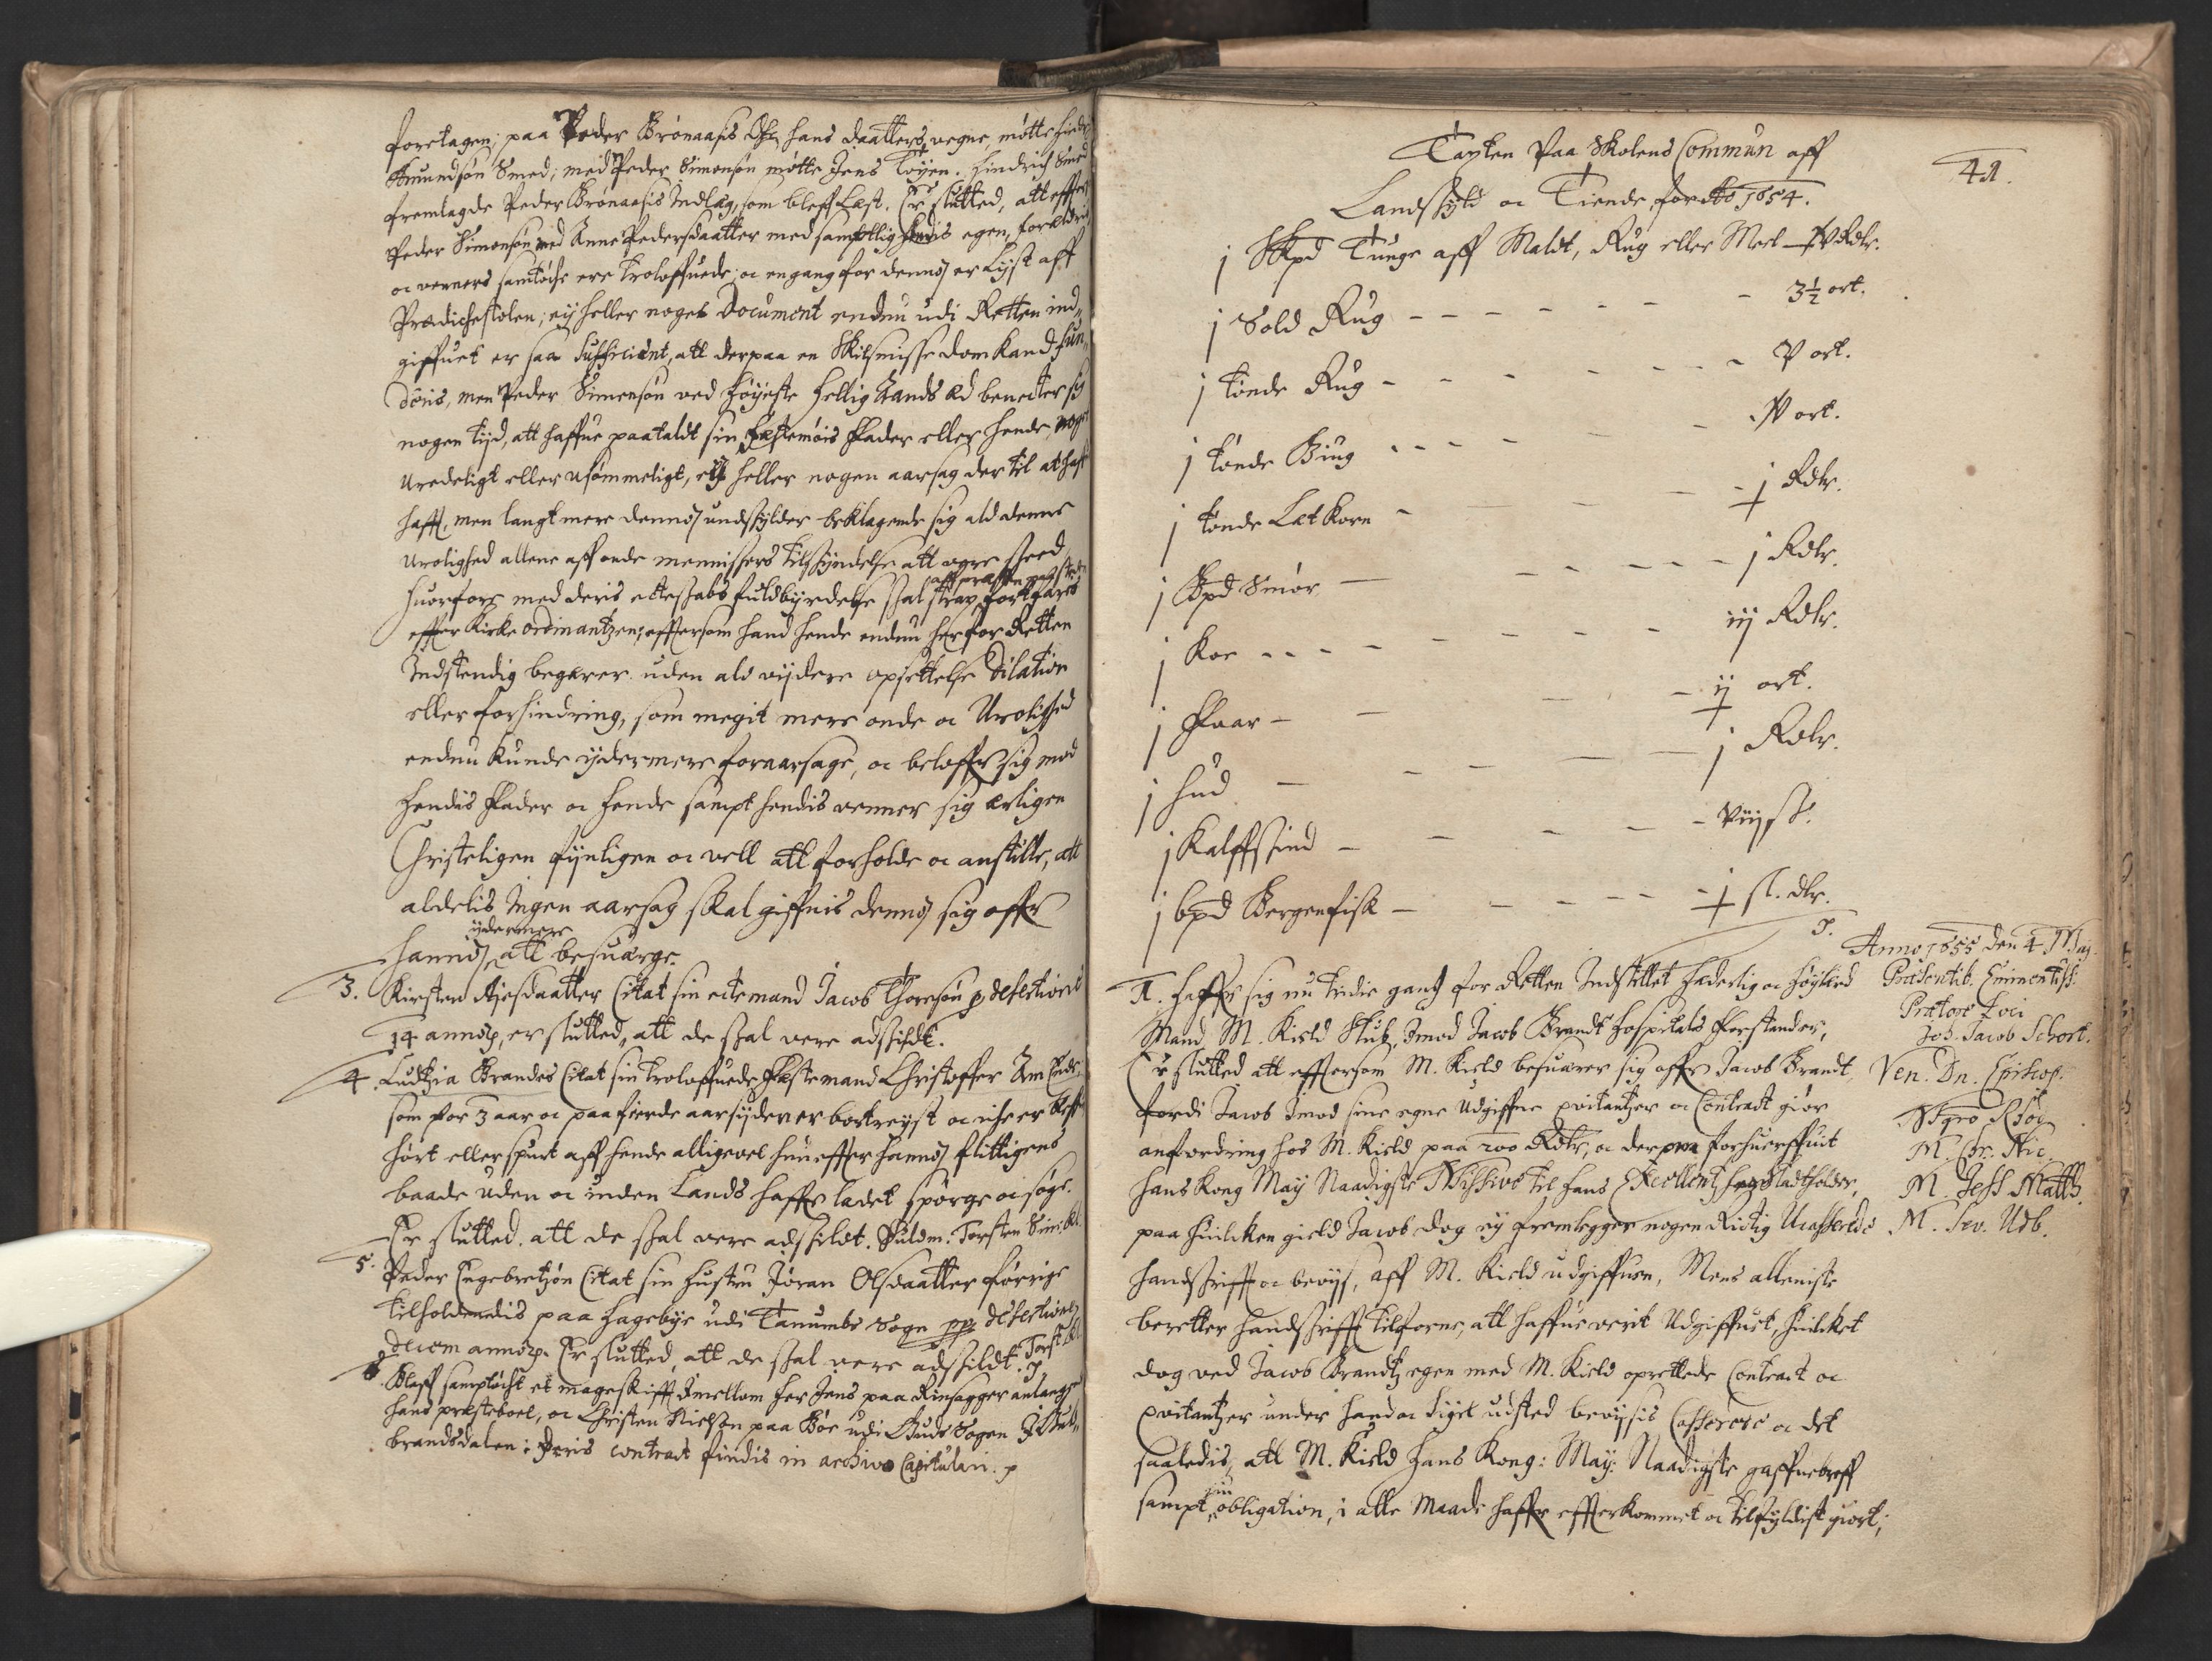 foretagen; paa Peder Brönaasis och hans daatters vegne, mötte hindrich
Amundsön Smed; med Peder Simensön mötte Jens Töyen. Hindrich Smed
fremlagde Peder Brönaasis Indlæg, som bleff Læst. Er slutted, att effter
Peder Simensön med Anne Pedersdaatter med samptlig hendis egen, forældris
oc venners samtöche ere troloffuede; oc engang for dennom er Lyst aff
Prædichestolen; ey heller noget Document endnu udi Retten ind„
giffuet er saa sufficient, att derpaa en Skilsmisse dom Kand fun„
deris, men Peder Simensön ved höyeste hellig Aands æd benecter sig
nogen tijd, att haffue paataldt sin festemöis Fader eller hende, noget
Uredeligt eller usömmeligt, ey heller nogen aarsag der til at haffue
hafft, men langt mere dennom undskylder beklagende sig ald denne
Urolighed allene aff onde menniskers tilskyndelse att vere skeed
huorfor med deris ecteskabs fuldbyrdelse skal strax fortfares
effter Kirke Ordinantzen; effttersom hand hende endnu her for Retten
Indstendig begærer uden ald vijdere opsettelse Dilation
eller forhindring, som megit mere onde oc Urolighed
endnu kunde ydermere foraarsage, oc beloffver sig mod
hendis Fader oc hende sampt hendis venner sig ærligen
Christeligen fynligen oc vell att forholde oc anstille, att
aldelis Ingen aarsag skal giffuis dennom sig offuer
ydermere
hannom att besuærge.
3. Kirsten Ajesdaatter Citat sin ectemand Jacob Thoresön p desertione
14 annorum, er slutted, att de skal vere adskildt.
4. Ludtzia Brandes Citat sin troloffuede Festemand Christoffer
som for 3 aar oc paa fierde aar syden er bortreyst oc iche er
hört eller spurt aff hende alligevel hun effter hannom flittigens
baade uden oc inden Lands haffuer ladet spörge oc söge.
Er slutted. att de skal vere adskildt. Fuldm. Torsten
5. Peder Engebretzön Citat sin hustru Jöran Olsdaatter förrige
tilholdendis paa Hagebye udi Tanumbs Sogn pp desertionem
decem annorum. Er slutted, att de skal vere adskildt.
6 Bleff samptöcht et mageskifft imellom her Jens paa Rinsagger anlangende
hans præsteboel, oc Christen Nielsön paa Böe udi Sogen I Gul„
brandsdalen: Deris contract findis in archivo Capitulari.
41.
Taxten Paa Skolens Commun aff
Landskyld oc Tiende, for Ao 1654.
j Skpd Tunge aff Maldt, Rug eller Meel — Rdlr.
j Sold Rug - - - - - 3½ ort.
j tönde Rug - - - - - V ort.
j tönde Biug - - - - - IV ort.
j tönde Let Korn - - - j Rdlr.
j Bpd Smör - - - - - j Rdlr.
j Koe - - - - - iij Rdlr.
j Faar - - - - ij ort.
j Hud - - - - j Rdlr.
j Kalffskind - - - - - viij sk.
j bpd Bergenfisk - - - - - j sl. dlr.
Anno 1655 den 4 Maj.
Præsentib. Eminentiss.
Prætore Loci
Joh. Jacob Schort.
Ven. Dn. Episcop.
M. Nic.
M. Jess Matth.
M. Sev. Udb.
1. Haffuer sig nu tredie gang for Retten Indstillet hæderlig oc höylærd
Mand M. Kield Stub, Imod Jacob Brandt hospitals Forstander,
Er slutted att effttersom M. Kield besuærer sig offuer Jacob Brandt,
fordi Jacob imod sine egne Udgiffne qvitantzer oc Contract giör
anfordring hos M. Kield paa 200 Rdlr, oc derpaa forhuerffuit
hans Kong May Naadigste Missive til hans Excellentz her Stadtholder,
paa huilcken gield Jacob dog ey fremlegger nogen Rictig Ucasserede
handskrifft oc bevijs, aff M. Kield udgiffuen, Mens alleniste
beretter handskrifft tilforne, att haffue verit Udgiffuet, huilcket
dog ved Jacob Brandtz egen med M. Kield oprettede Contract oc
qvitantzer under hand oc Signet udsted bevijsis Casserere oc det
saaledis, att M. Kield Hans Kong: May: Naadigste gaffuebreff
sampt sin obligation, i alle Maade haffuer effterkommet oc tilfyldist giort;